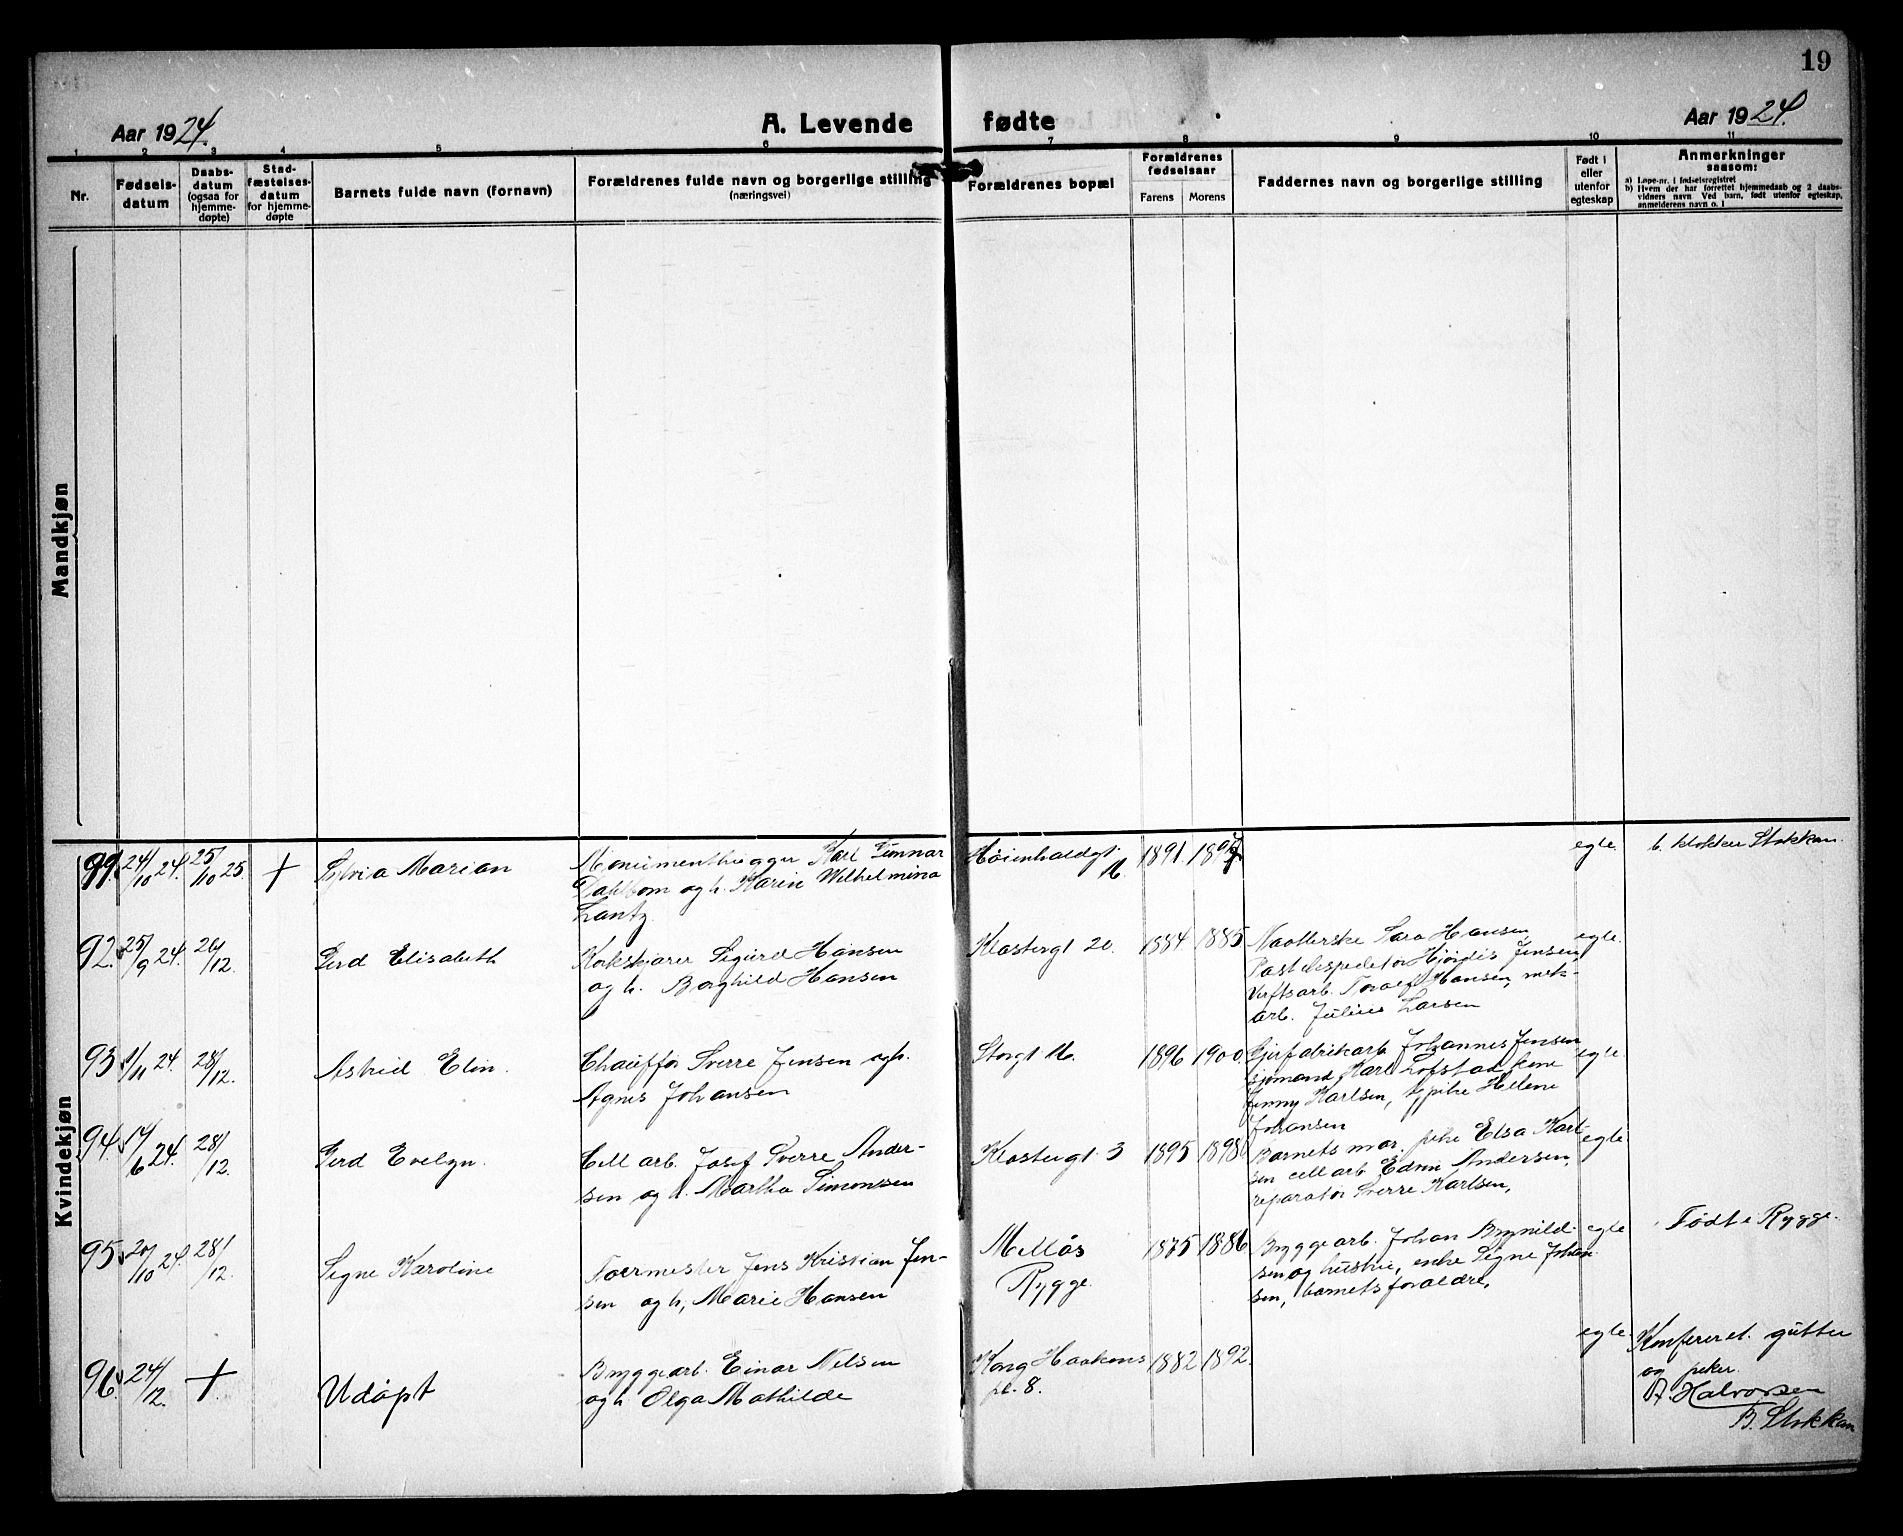 19
Aar 1924.
A. Levende fødte
Aar 1924.
1 2 3 4 5 6 7 8 9 10 11
Nr.
Fødsels-
datum
Daabs-
datum
(ogsaa for
hjemme-
døpte)
Stad-
fæstelses-
datum
for hjemme-
døpte
Barnets fulde navn (fornavn)
Forældrenes fulde navn og borgerlige stilling
(næringsvei)
Forældrenes bopæl
Forældrenes
fødselsaar
Farens Morens
Faddernes navn og borgerlige stilling
Født i
eller
utenfor
egteskap
Anmerkninger
saasom:
a) Løpe-nr. i fødselsregistret
b) Hvem der har forrettet hjemmedaab og 2 daabs-
vidners navn Ved barn, født utenfor egteskap,
anmelderens navn o. l
Mandkjøn
Kvindekjøn
91. 24/10 24. 25/10 25. + Sylvia Marian
Monumenthugger Karl Gunnar
Dahlbom og h. Karin Wilhelmina
Lantz
Høienhaldgt.
1891
egte
b. klokker Stokkan.
92. 25/9 24. 26/12. Gerd Elisabeth
Korkskjærer Sigurd Hansen
og h. Borghild Hansen
Klostergt 20. 1884 1885
Naatlerske Sara Hansen,
Postekspeditør Hjørdis Jensen,
Verftsarb. Toralf Hansen, mek-
arb. Julius Larsen
egte.
93. 1/11 24. 28/12. Astrid Elin.
Chauffør Sverre Jensen og h.
Agnes Johansen
Storgt 16. 1896 1900.
Johannes Jensen
sjømand, Karl Lofstad, frue
Jenny Karlsen, pike Helene
Johansen
egte.
94. 14/6 24. 28/12. Gerd Evelyn.
Cell arb. Josef Sverre Ander-
sen og h. Martha Simonsen
Klostergt. 3 1895 1898
Barnets mor, pike Elsa Karl-
sen cell arb Edvin Andersen,
reparatør Sverre Karlsen,
egte.
95. 20/10 24. 28/12. Signe Karoline
Formester Jens Kristian Jen-
sen og h, Marie Hansen
Melløs
Rygge.
1875 1886
Byggearb. Johan Brynild-
sen og hustru, enke Signe Johan-
sen, barnets forældre,
egte
Født i Rygge.
96. 24/12. + Udøpt
Byggearb. Einar Nilsen
og h. Olga Mathilde
Kong Haakons
pl. 8.
1882 1892.
egte.
Konfereret. gutter
og piker.
A. Halvorsen
B. Stokkan